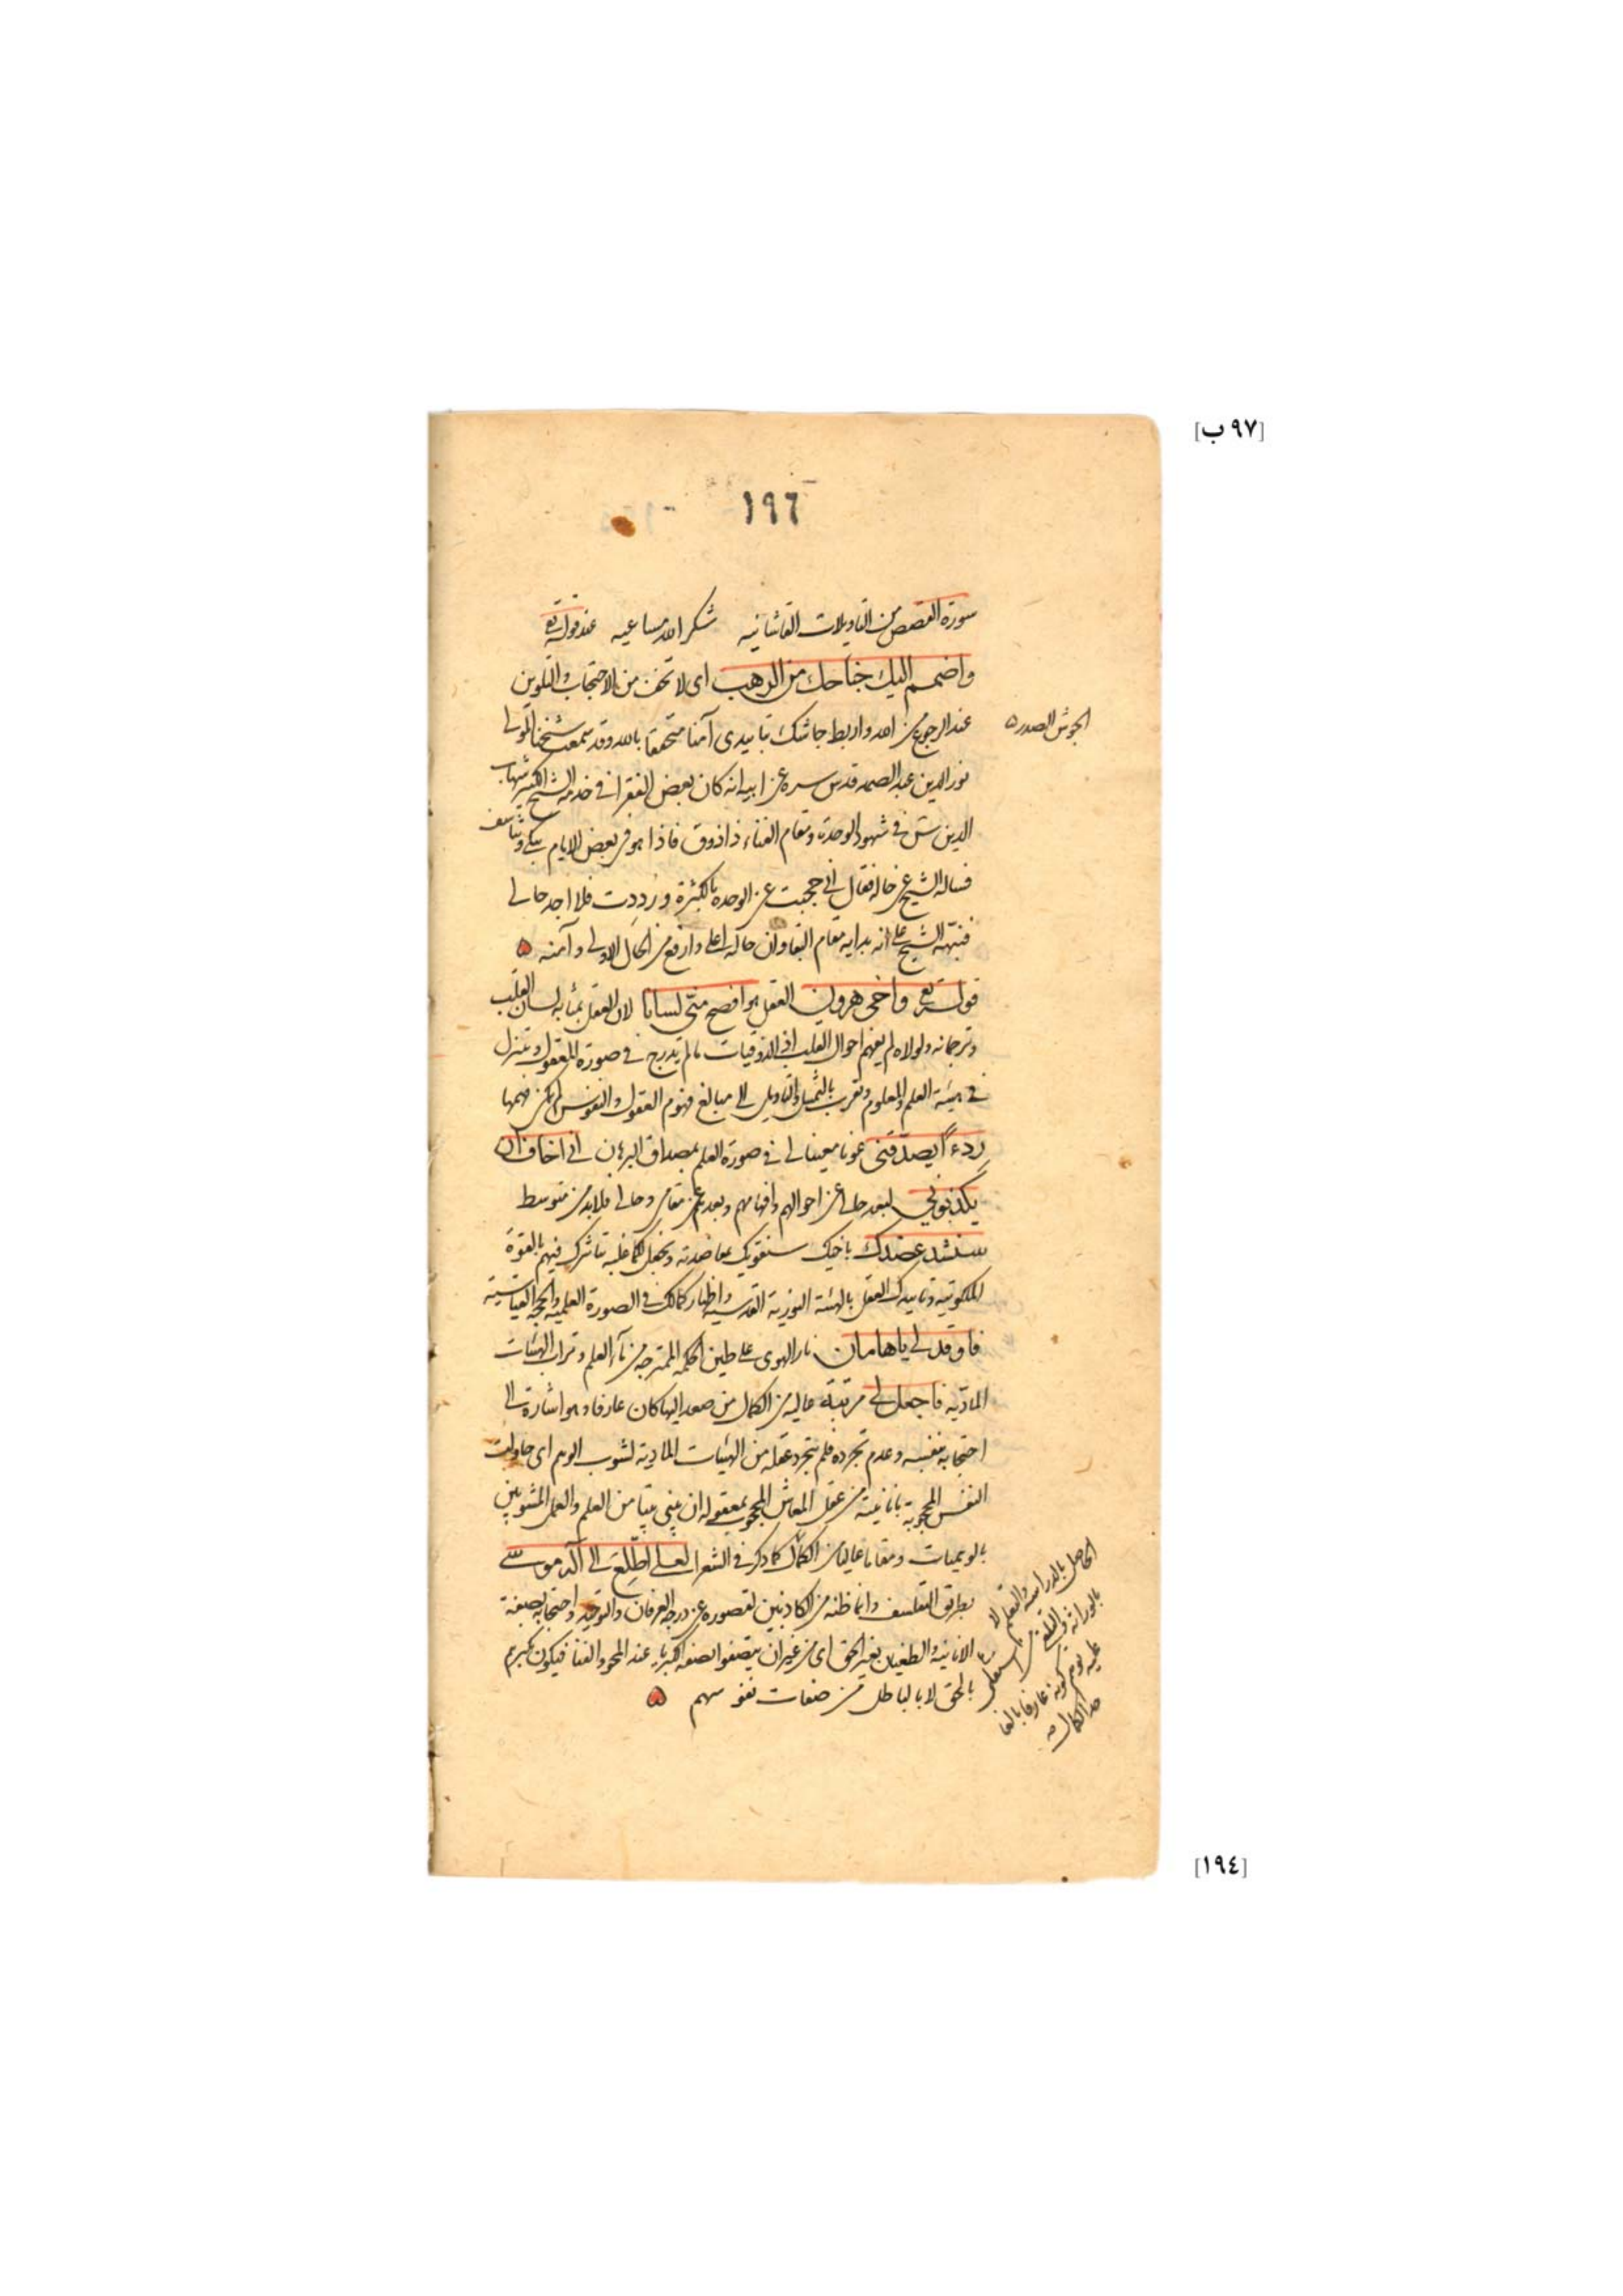 [٩٧ ب]
١٩٦
سورة القصص من التاويلات القاشانيه شكر الله مساعيه عند قوله تع
واضمم اليك جناحك من الرهب اى لا تخف من الاحتجاب والتلوين
عند الرجوع من الله واربط جاشك بتاييدى آمنا متحققا بالله وقد سمعت شيخنا المولى
الجوش الصدر
نور الدين عبد الصمد قدس سره عن ابيه انه كان بعض الفقرا فى خدمة الشيخ الكبير شهاب
الدين فى شهود الوحدة ومقام الفناء ذا ذوق فاذا هو فى بعض الايام يبكى ويتاسف
فساله الشيخ عن حاله فقال انى حجبت عن الوحده بالكثرة ورددت فلا اجد حالى
فنبهه الشيخ على انه بداية مقام البقا وان حاله اعلى وارفع من الحال الاولى وآمنه
قوله تع واخى هرون العقل هو افصح منى لسانا لان العقل بمثابة لسان القلب
وترجمانه ولولاه لم يفهم احوال القلب اذ الذوقيات ما لم يدرج فى صورة المعقول وتتنزل
فى هيئة العلم والمعلوم وتقرب بالتمثيل والتاويل الى مبالغ فهوم العقول والنفوس لم يمكن فهمها
ردءا يصدقنى عونا معينا لى فى صورة العلم بمصداق البرهان انى اخاف ان
يكذبونى لبعد حالى عن احوالهم وافهامهم وبعدهم عن مقامى وحالى فلا بد من متوسط
سنشد عضدك باخيك سنقويك بمعاضدته ونجعل لكما غلبة بتاثيرك فيهم بالقوة
الملكوتية وتاييدك العقل بالهيئة النورية القدسية واظهار كمالك فى الصورة العلمية والحجة القياسية
فاوقد لى ياهامان نار الهوى على طين الحكمة الممتزجة من ماء العلم وتراب الهيئات
المادية فاجعل لى مرتبة عالية من الكمال من صعد اليها كان عارفا وهو اشارة الى
احتجابه بنفسه وعدم تجرده فلم يتجرد عقله من الهيئات المادية لشوب الوهم اى حاولت
النفس المحجوبة بانانيته من عقل المعاش المحجوب بمعقوله ان يبنى بيتا من العلم والعمل المشوبين
بالوهميات ومقاما عاليا من الكمال كما ذكر فى الشعرا لعلى اطلع الى اله موسى
بطريق التفلسف وانما ظنه من الكاذبين لقصوره عن درجة العرفان والتوحيد واحتجابه بصفة
الانانية والطغيان بغير الحق اى من غير ان يتصفوا بصفة الكبرياء عند المحو والفنا فيكون تكبرهم
بالحق لا بالباطل من صفات نفوسهم
الحاصل بالدراسة والتعلم لا
بالوراثة والتلقى
عليه توهم كونه عارفا بالغا
حد الكمال
[١٩٤]